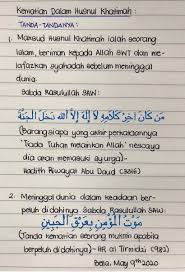 Kematian Dalam Husnul Khatimah :
TANDA-TANDANYA :
1. Maksud Husnul Khatimah seorang
Islam, beriman kepada Allah SWT dan me-
lafazkan syahadah sebelum meninggal
dunia.
Sabda Rasulullah SAW:
مَنْ كَانَ آخِرُ كَلَامِهِ لَا إِلَهَ إِلَّا اللَّهُ دَخَلَ الْجَنَّةَ
(Barangsiapa yang akhir perkataannya
'Tiada Tuhan melainkan Allah' nescaya
dia akan memasuki syurga)-
Hadith Riwayat Abu Daud (3116)
2. Meninggal dunia dalam keadaan ber-
peluh di dahinya. Sabda Rasulullah SAW:
مَوْتُ الْمُؤْمِنِ بِعَرَقِ الْجَبِينِ
(Tanda kematian seorang mukmin apabila
berpeluh di dahinya) - HR at Tirmidzi (982)
May 9th 2020